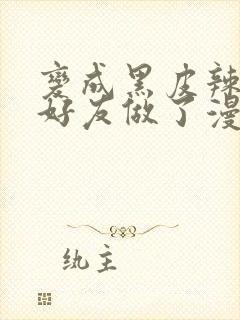 变成黑皮辣
好友做了漫
纨主